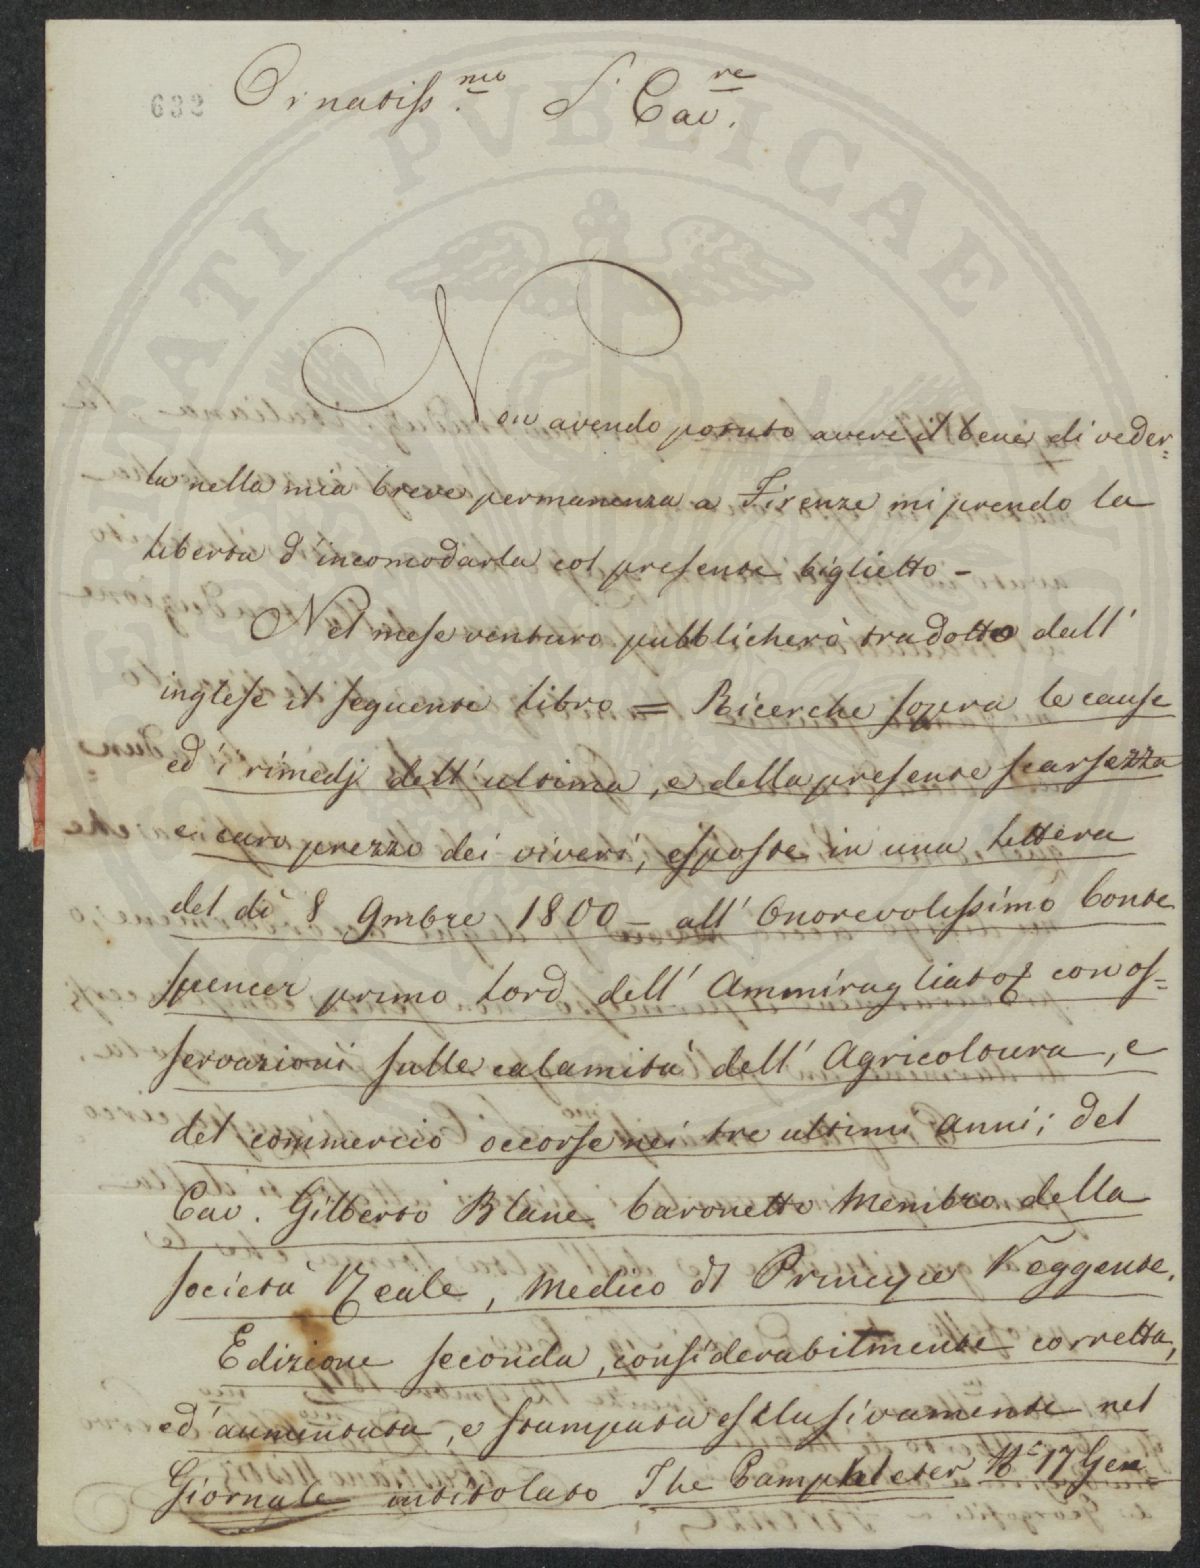 632
Ornatiss.mo S. Cav.re
Non avendo potuto avere il bene di veder=
la nella mia breve permanenza a Firenze mi prendo la
libertà d'incomodarla col presente biglietto -
Nel mese venturo pubblicherò tradotto dall'
inglese il seguente libro = Ricerche sopra le cause
ed i rimedj dell'ultima, e della presente scarsezza
e caro prezzo dei viveri, esposte in una lettera
del dì 8 9mbre 1800 - all'Onorevolissimo Conte
Spencer primo Lord dell'Ammiragliato con os=
servazioni sulle calamità dell'Agricoltura, e
del commercio occorse nei tre ultimi anni; del
Cav. Gilberto Blane baronetto Membro della
società Reale, Medico di Principe Reggente.
Edizione seconda, considerabilmente corretta,
ed aumentata, e stampata esclusivamente nel
Giornale intitolato The Pamphleter No 17 Gen=